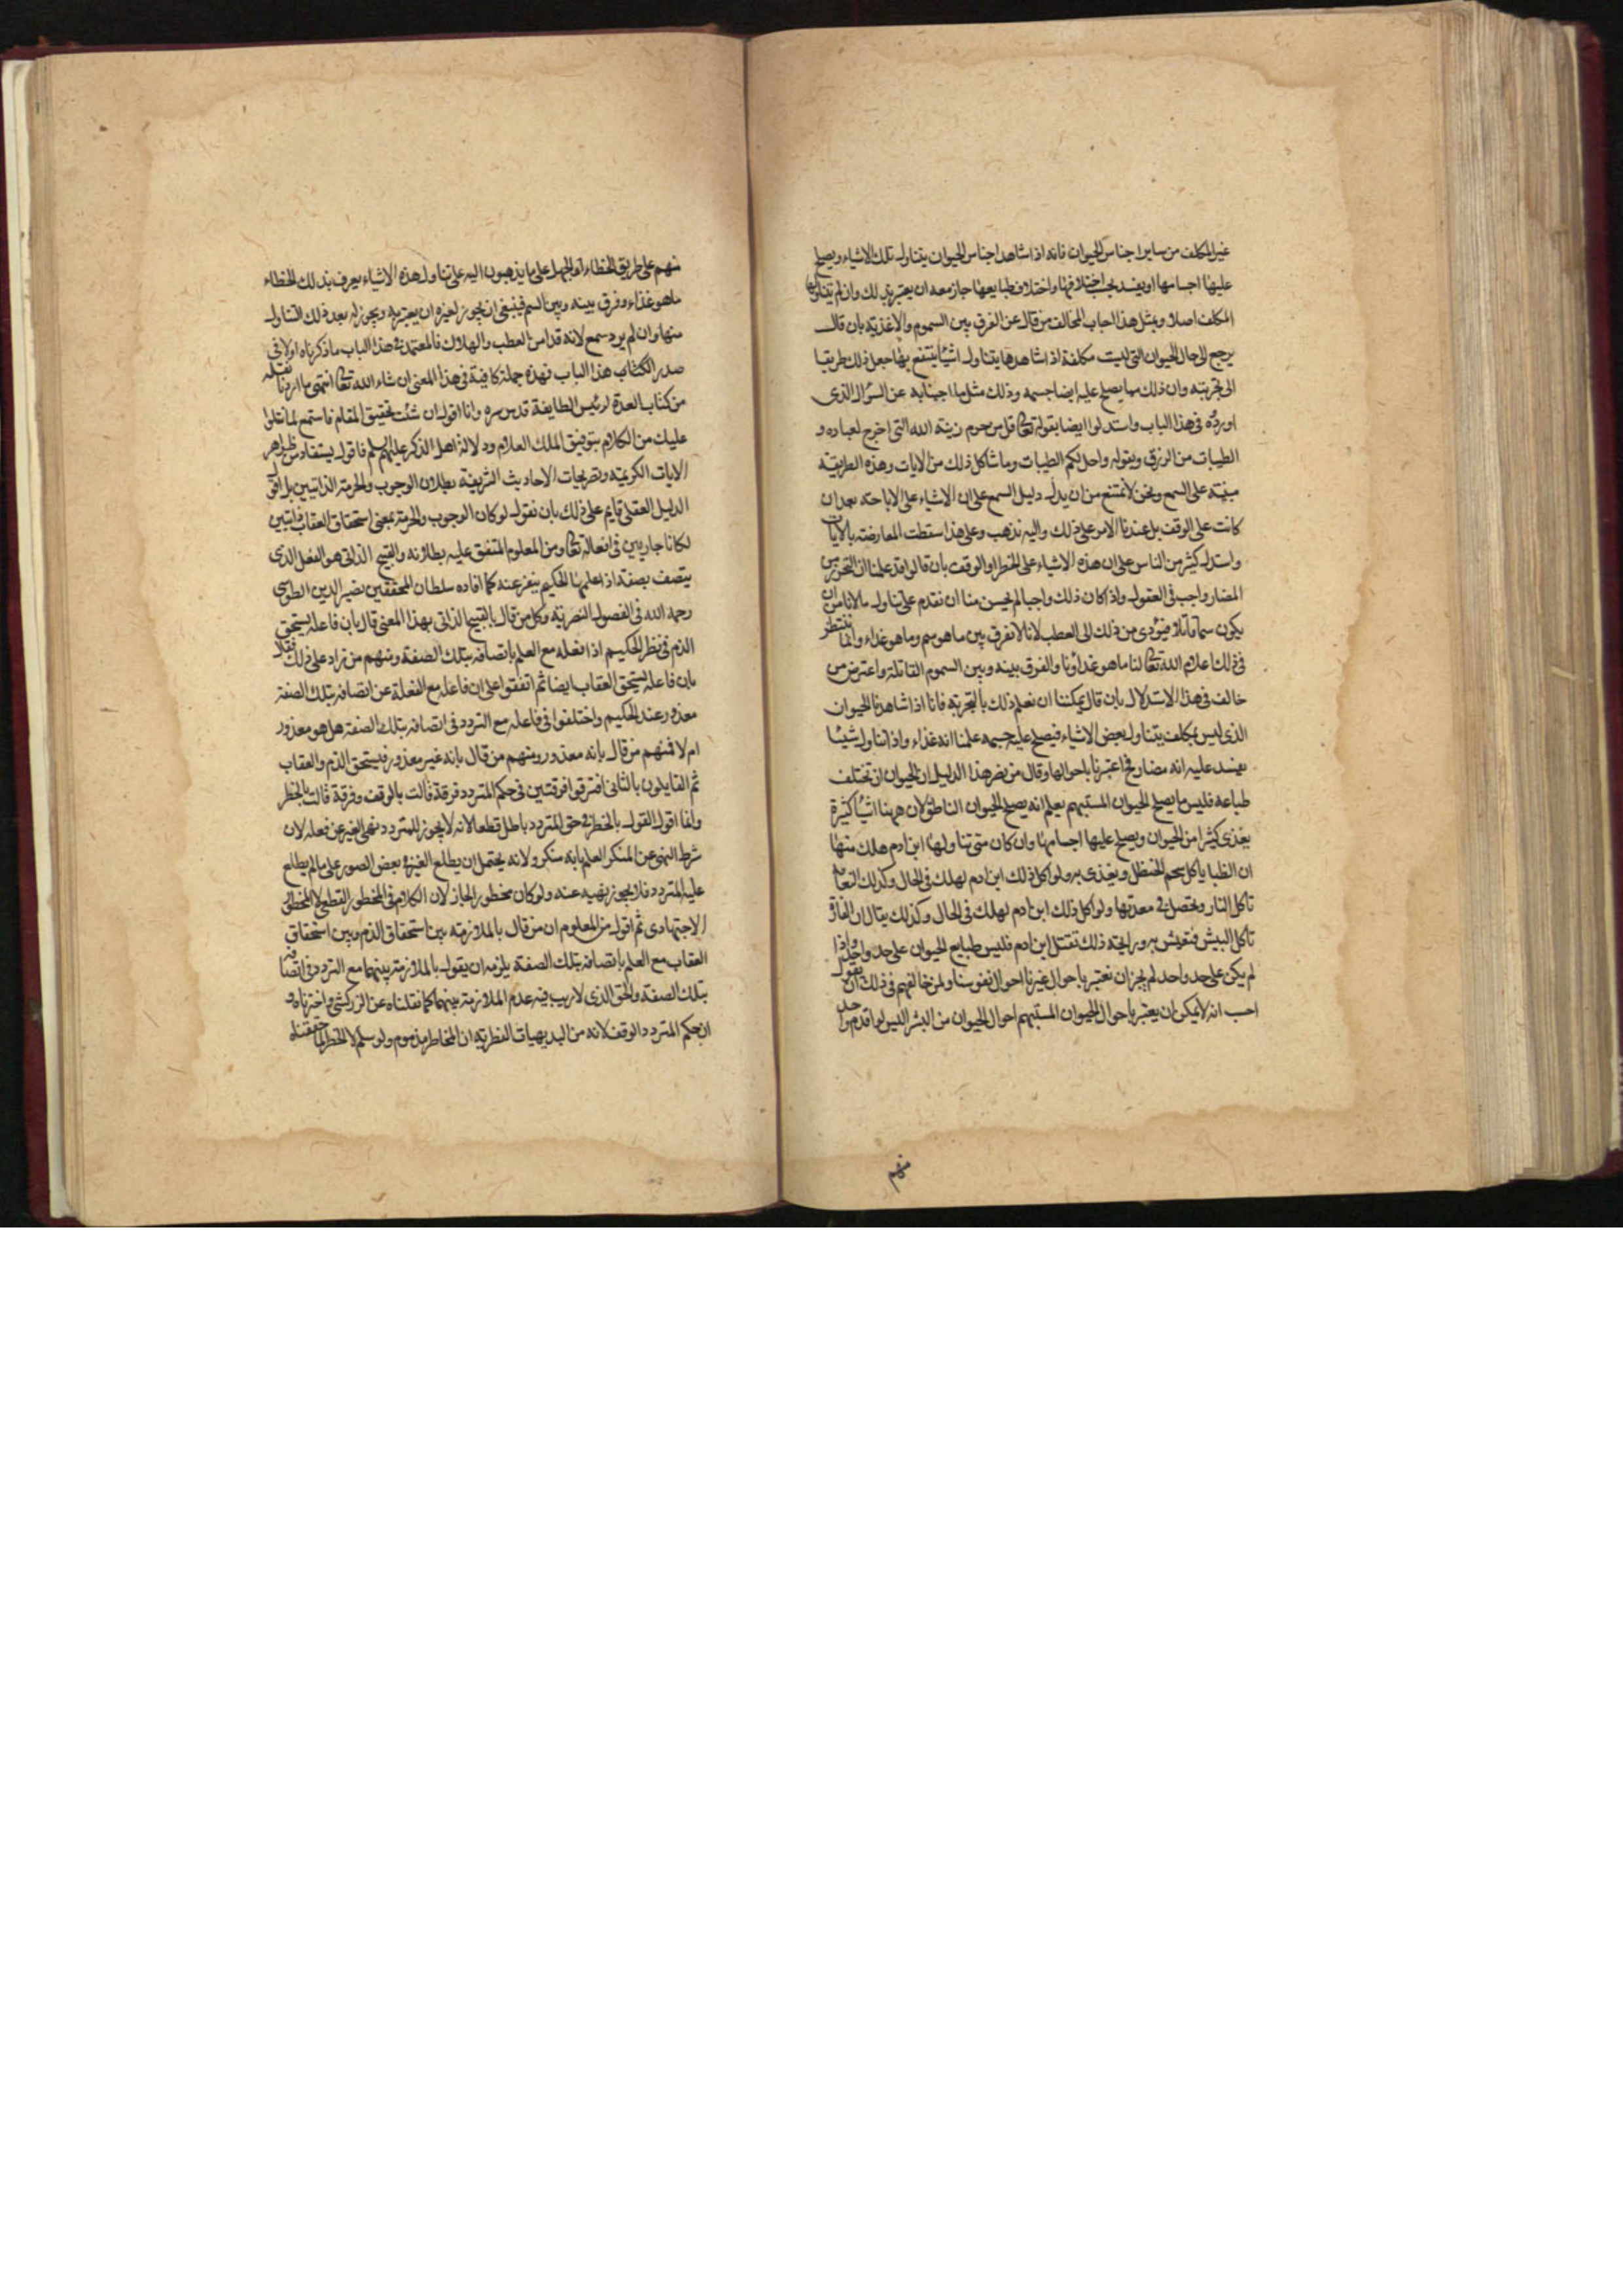 غير المكلف من ساير اجناس الحيوان فانه اذا شاهد اجناس الحيوان يتناول تلك الاشياء ويصلح
عليها اجسامها او يفسد بحسب اختلافها واختلاف طبايعها جاز معه ان يعتبر بذلك وان لم يتناولها
المكلف اصلا وبمثل هذا اجاب المخالف من قال عن الفرق بين السموم والاغذية بان قال
يرجع الى حال الحيوان التى ليست مكلفة اذا شاهدها يتناول اشياء ينتفع بها جعل ذلك طريقا
الى تجربته وان ذلك مما يصلح عليه ايضا جسمه وذلك مثل ما اجبنا به عن السؤال الذى
اوردوه فى هذا الباب واستدلوا ايضا بقوله تعالى قل من حرم زينة الله التى اخرج لعباده و
الطيبات من الرزق وبقوله واحل لكم الطيبات وما شاكل ذلك من الايات وهذه الطريقة
مبنية على السمع ونحن لا نمتنع من ان يدل دليل السمع على ان الاشياء على الاباحة بعد ان
كانت على الوقف بل عندنا الامر على ذلك واليه نذهب وعلى هذا سقطت المعارضة بالايات
واستدل كثير من الناس على ان هذه الاشياء على الحظر او الوقف بان قالوا قد علمنا ان التحرز من
المضار واجب فى العقول واذا كان ذلك واجبا لم يحسن منا ان نقدم على تناول ما لا نامن ان
يكون سما قاتلا فيؤدى من ذلك الى العطب لانا لا نفرق بين ما هو سم وما هو غذاء وانما ننتظر
فى ذلك اعلام الله تعالى لنا ما هو غذاؤنا والفرق بينه وبين السموم القاتلة واعترض من
خالف فى هذا الاستدلال بان قال يمكننا ان نعلم ذلك بالتجربة فانا اذا شاهدنا الحيوان
الذى ليس بمكلف يتناول بعض الاشياء فيصلح عليه جسمه علمنا انه غذاء واذا تناول شيئا
يفسد عليه انه مضار فاعتبرنا باحوالها وقال من نصر هذا الدليل ان الحيوان ان تختلف
طباعه فليس ما يصلح الحيوان المستبهم يعلم انه يصلح الحيوان الناطق لان ههنا اشياء كثيرة
يغذى كثيرا من الحيوان ويصلح عليها اجسامها وان كان متى تناولها ابن ادم هلك منها
ان الظبا ياكل شحم الحنظل ويغذى به ولو اكل ذلك ابن ادم لهلك فى الحال وكذلك النعامة
تاكل النار وتحصل فى معدتها ولو اكل ذلك ابن ادم لهلك فى الحال وكذلك يقال ان الفارة
تاكل البيش فتعيش به ورايحة ذلك تقتل ابن ادم فليس طبايع الحيوان على حد واحد واذا
لم يكن على حد واحد لم يجز ان نعتبر باحوال غيرنا احوال نفوسنا ولمن خالفهم فى ذلك ان يقول
احسب انه لا يمكن ان يعتبر باحوال الحيوان المستبهم احوال الحيوان من البشر اليس لو اقدم واحد
منهم
منهم على طريق الخطاء او الجهل على ما يذهبون اليه على تناول هذه الاشياء يعرف بذلك الخطاء
ما هو غذاء وفرق بينه وبين السم فينبغى ان يجوز لغيره ان يعتبر به ويجوز له بعد ذلك التناول
منها وان لم يرد سمع لانه قد امن العطب والهلاك فالمعتمد فى هذا الباب ما ذكرناه اولا فى
صدر الكتاب هذا الباب فهذه جملة كافية فى هذا المعنى ان شاء الله تعالى انتهى ما اردنا نقله
من كتاب العدة لرئيس الطايفة قدس سره وانا اقول ان شئت تحقيق المقام فاستمع لما نتلوا
عليك من الكلام بتوفيق الملك العلام ودلالة اهل الذكر عليهم السلم فاقول يستفاد من ظواهر
الايات الكريمة وتصريحات الاحاديث الشريفة بطلان الوجوب والحرمة الذاتيين بل اقول
الدليل العقلى قايم على ذلك بان نقول لو كان الوجوب والحرمة بمعنى استحقاق العقاب ذاتيين
لكانا جاريين فى افعاله تعالى ومن المعلوم المتفق عليه بطلانه والقبيح الذاتى هو الفعل الذى
يتصف بصفة اذا علمها الحكيم ينفر عنه كما افاده سلطان المحققين نصير الدين الطوسى
رحمه الله فى الفصول النصرية وكل من قال بالقبيح الذاتى بهذا المعنى قال بان فاعله يستحق
الذم فى نظر الحكيم اذا فعله مع العلم باتصافه بتلك الصفة ومنهم من زاد على ذلك فقال
بان فاعله يستحق العقاب ايضا ثم اتفقوا على ان فاعله مع الغفلة عن اتصافه بتلك الصفة
معذور عند الحكيم واختلفوا فى فاعله مع التردد فى اتصافه بتلك الصفة هل هو معذور
ام لا فمنهم من قال بانه معذور ومنهم من قال بانه غير معذور فيستحق الذم والعقاب
ثم القايلون بالثانى افترقوا فرقتين فى حكم المتردد فرقة قالت بالوقف وفرقة قالت بالحظر
وانما اقول القول بالحظر فى حق المتردد باطل قطعا لانه لا يجوز للمتردد نهى الغير عن فعله لان
شرط النهى عن المنكر العلم بانه منكر ولانه يحتمل ان يطلع الغير فى بعض الصور على ما لم يطلع
عليه المتردد فلا يجوز نهيه عنه ولو كان محظورا لجاز لان الكلام فى المحظور القطعى لا المحظور
الاجتهادى ثم اقول من المعلوم ان من قال بالملازمة بين استحقاق الذم وبين استحقاق
العقاب مع العلم باتصافه بتلك الصفة يلزمه ان يقول بالملازمة بينهما مع التردد فى اتصافه
بتلك الصفة والحق الذى لا ريب فيه عدم الملازمة بينهما كما نقلناه عن الزركشى واخترناه و
ان حكم المتردد الوقف لانه من البديهيات الفطرية ان المخاطر مذموم ولو سلم لا الحظر لما حققناه